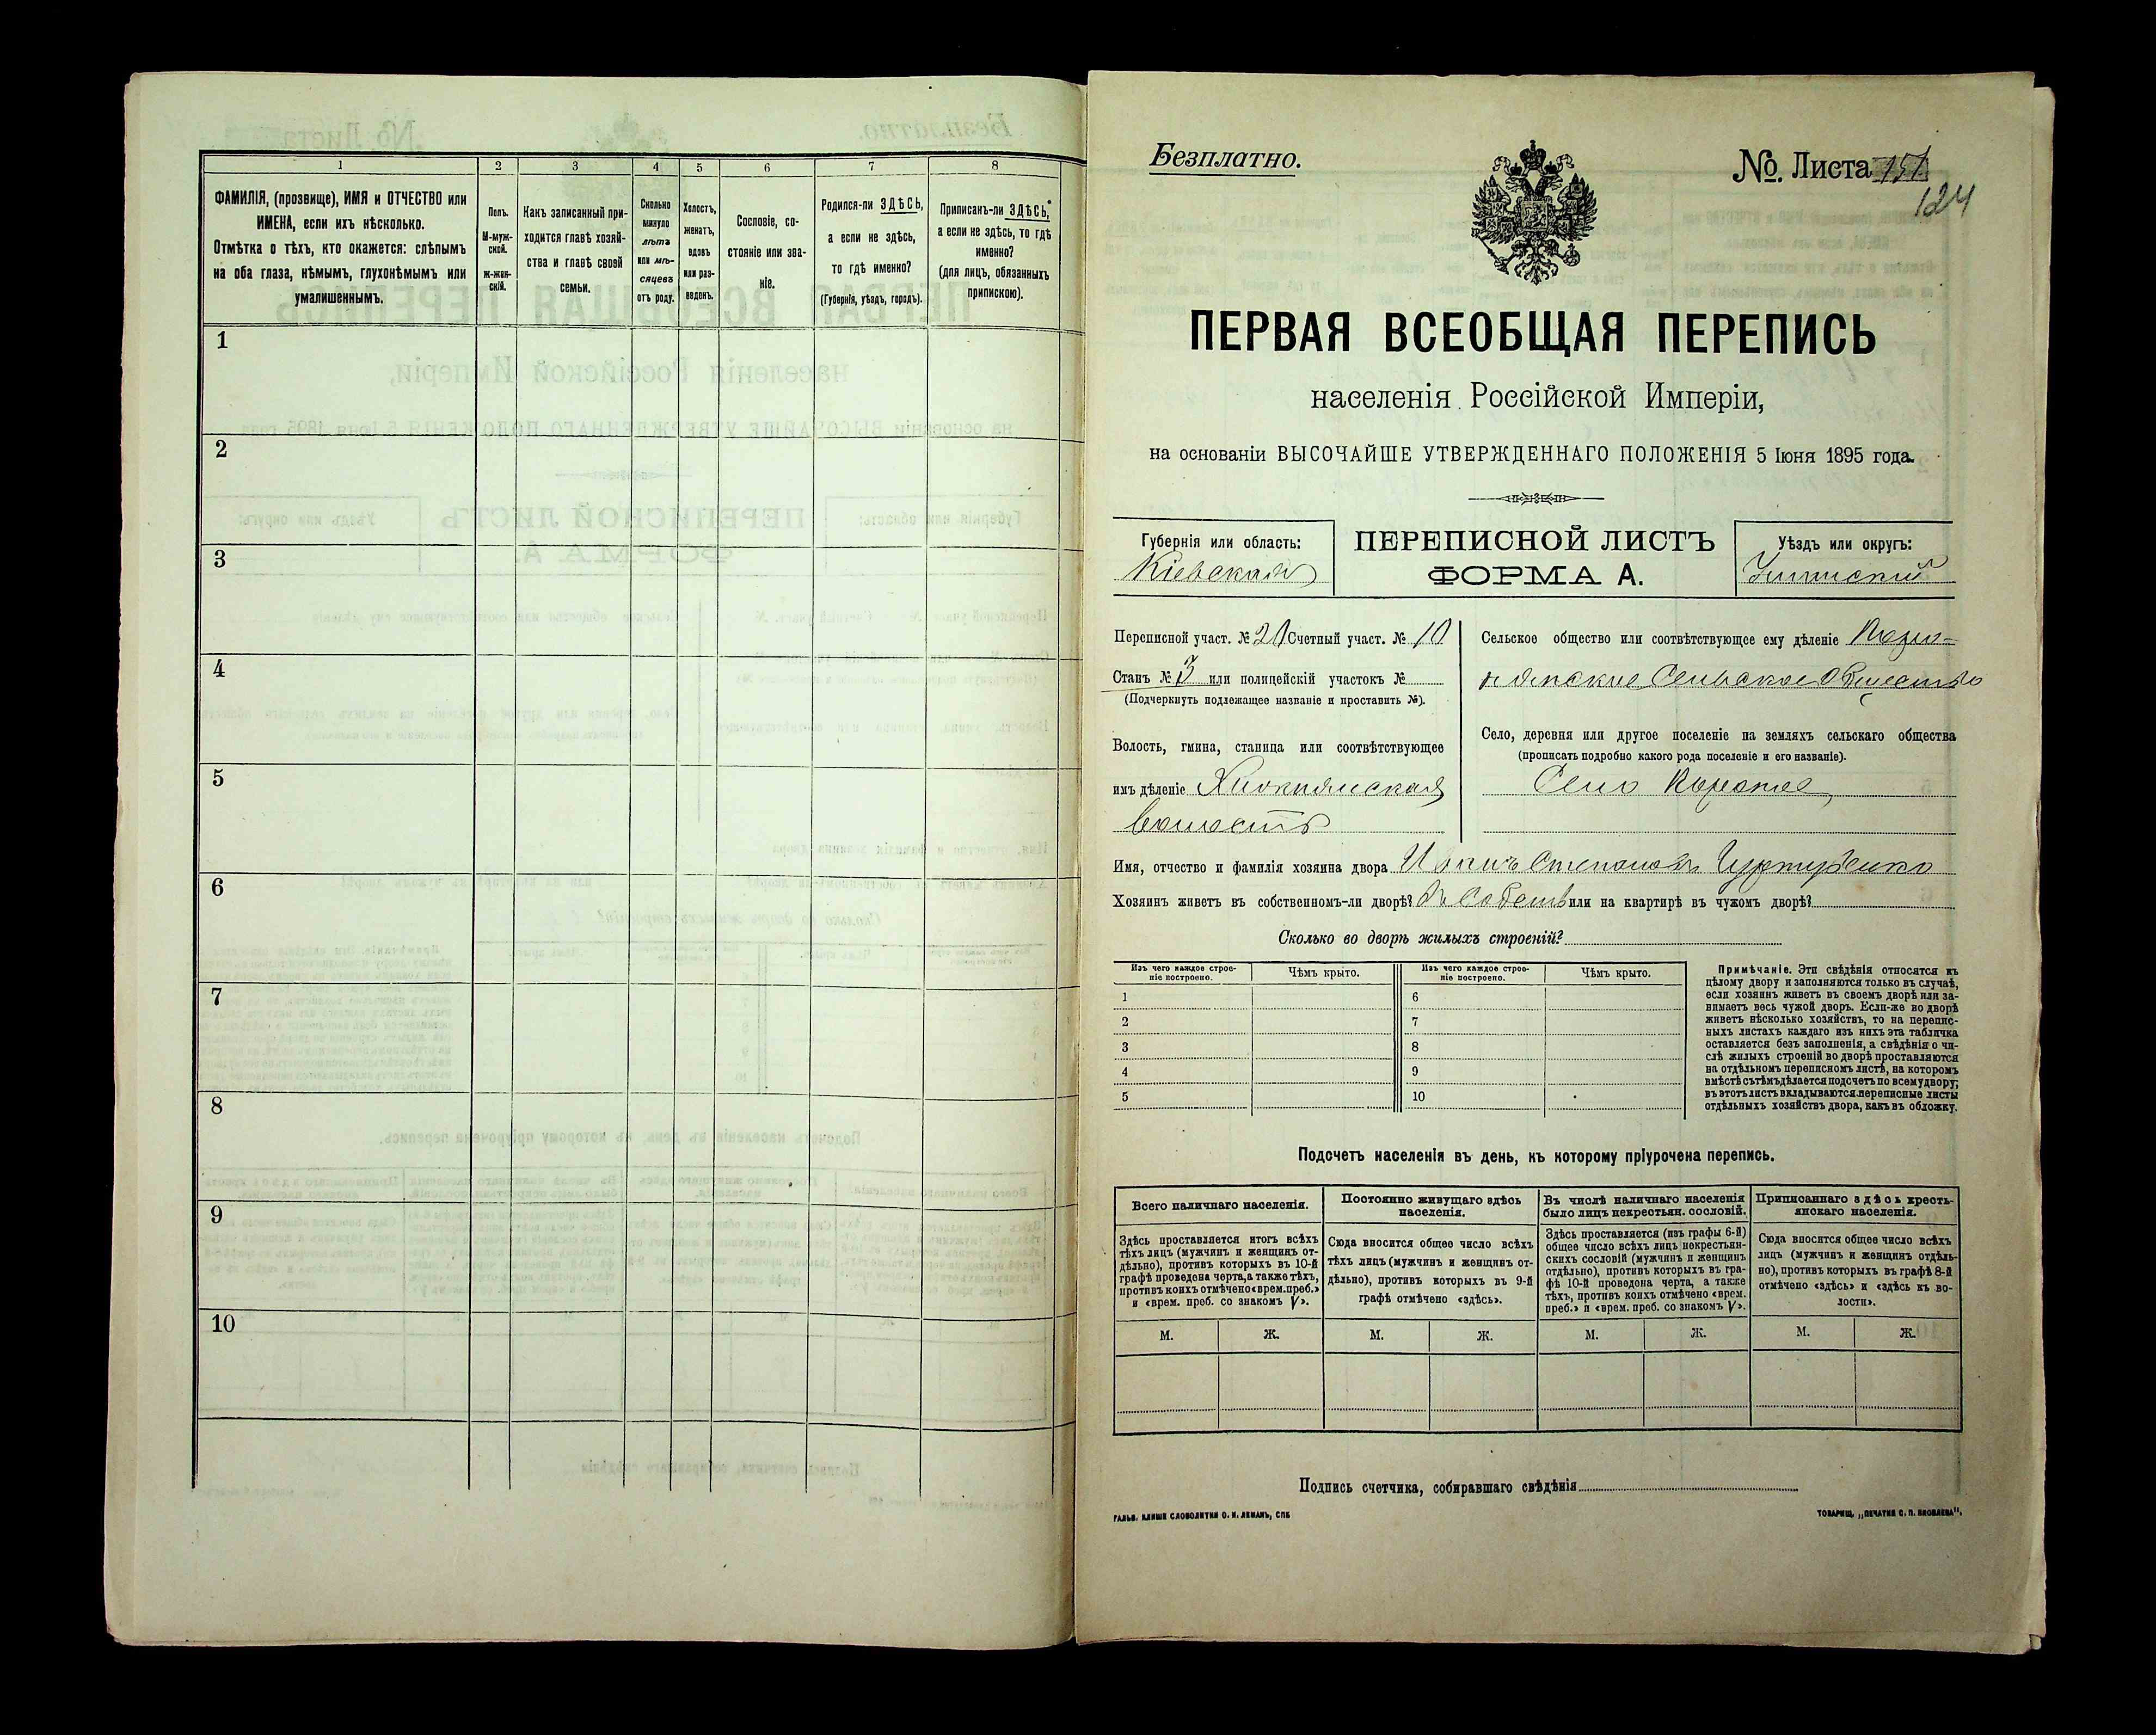 1 2 3 4 5 6 7 8
ФАМИЛІЯ, (прозвище), ИМЯ и ОТЧЕСТВО или
ИМЕНА, если ихъ нѣсколько.
Отмѣтка о тѣхъ, кто окажется: слѣпымъ
на оба глаза, нѣмымъ, глухонѣмымъ или
умалишеннымъ.
Полъ.
М-муж-
ской.
ж-жен-
скій.
Какъ записанный при-
ходится главѣ хозяй-
ства и главѣ своей
семьи.
Сколько
минуло
лѣтъ
или мѣ-
сяцевъ
отъ роду.
Холостъ,
женатъ,
вдовъ
или раз-
веденъ.
Сословіе, со-
стояніе или зва-
ніе.
Родился-ли ЗДѢСЬ,
а если не здѣсь,
то гдѣ именно?
(Губернія, уѣздъ, городъ).
Приписанъ-ли ЗДѢСЬ,
а если не здѣсь, то гдѣ
именно?
(для лицъ, обязанныхъ
припискою).
1
2
3
4
5
6
7
8
9
10
Безплатно.
№ Листа 151
124
ПЕРВАЯ ВСЕОБЩАЯ ПЕРЕПИСЬ
населенія Россійской Имперіи,
на основаніи ВЫСОЧАЙШЕ УТВЕРЖДЕННАГО ПОЛОЖЕНІЯ 5 Іюня 1895 года.
Губернія или область:
Кіевская
ПЕРЕПИСНОЙ ЛИСТЪ
ФОРМА А.
Уѣздъ или округъ:
Переписной участ. № 20 Счетный участ. № 10
Станъ № 3 или полицейскій участокъ №
(Подчеркнуть подлежащее названіе и проставить №).
Волость, гмина, станица или соотвѣтствующее
имъ дѣленіе
волость
Сельское общество или соотвѣтствующее ему дѣленіе
Сельское Общество
Село, деревня или другое поселеніе на земляхъ сельскаго общества
(прописать подробно какого рода поселеніе и его названіе).
Село
Имя, отчество и фамилія хозяина двора Иванъ Степановъ
Хозяинъ живетъ въ собственномъ-ли дворѣ? Въ Собств или на квартирѣ въ чужомъ дворѣ?
Сколько во дворѣ жилыхъ строеній?
Изъ чего каждое строе-
ніе построено.
Чѣмъ крыто.
Изъ чего каждое строе-
ніе построено.
Чѣмъ крыто.
1 6
2 7
3 8
4 9
5 10
Примѣчаніе. Эти свѣдѣнія относятся къ
цѣлому двору и заполняются только въ случаѣ,
если хозяинъ живетъ въ своемъ дворѣ или за-
нимаетъ весь чужой дворъ. Если-же во дворѣ
живетъ нѣсколько хозяйствъ, то на перепис-
ныхъ листахъ каждаго изъ нихъ эта табличка
оставляется безъ заполненія, а свѣдѣнія о чи-
слѣ жилыхъ строеній во дворѣ проставляются
на отдѣльномъ переписномъ листѣ, на которомъ
вмѣстѣ съ тѣмъ дѣлается подсчетъ по всему двору;
въ этотъ листъ вкладываются переписные листы
отдѣльныхъ хозяйствъ двора, какъ въ обложку.
Подсчетъ населенія въ день, къ которому пріурочена перепись.
Всего наличнаго населенія.
Здѣсь проставляется итогъ всѣхъ
тѣхъ лицъ (мужчинъ и женщинъ от-
дѣльно), противъ которыхъ въ 10-й
графѣ проведена черта, а также тѣхъ,
противъ коихъ отмѣчено «врем. преб.»
и «врем. преб. со знакомъ V».
Постоянно живущаго здѣсь
населенія.
Сюда вносится общее число всѣхъ
тѣхъ лицъ (мужчинъ и женщинъ от-
дѣльно), противъ которыхъ въ 9-й
графѣ отмѣчено «здѣсь».
Въ числѣ наличнаго населенія
было лицъ некрестьян. сословій.
Здѣсь проставляется (изъ графы 6-й)
общее число всѣхъ лицъ некрестьян-
скихъ сословій (мужчинъ и женщинъ
отдѣльно), противъ которыхъ въ гра-
фѣ 10-й проведена черта, а также
тѣхъ, противъ коихъ отмѣчено «врем.
преб.» и «врем. преб. со знакомъ V».
Приписаннаго здѣсь кресть-
янскаго населенія.
Сюда вносится общее число всѣхъ
лицъ (мужчинъ и женщинъ отдѣль-
но), противъ которыхъ въ графѣ 8-й
отмѣчено «здѣсь» и «здѣсь къ во-
лости».
М. Ж. М. Ж. М. Ж. М. Ж.
Подпись счетчика, собиравшаго свѣдѣнія
ГАЛЬВ. КЛИШЕ СЛОВОЛИТНИ О. И. ЛЕМАНЪ, СПБ
ТОВАРИЩ. „ПЕЧАТНЯ С. П. ЯКОВЛЕВА".